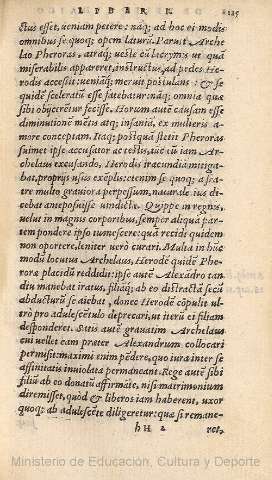 LIBER I.
ctus esset, ueniam petere: nãq; ad hoc ei modis
omnibus se quoq; opem laturũ. Paruit Arche
lao Pheroras, atraq; ueste cũ lacrymis ut quã
miserabilis appareret, instructus, ad pedes He
rodis accessit: ueniãq; meruit postulans: & se
quidẽ sceleratũ esse fatebatur: nãq; omnia quæ
sibi obijcerẽtur fecisse. Horum autẽ causam esse
diminutionẽ mẽtis atq; insaniã, ex mulieris a-
more conceptam. Itaq; postquã stetit Pheroras
suimet ipse accusator ac testis, aut cũ iam Ar-
chelaus excusando, Herodis iracundiã mitiga-
bat, proprijs usus exẽplis: etenim se quoq; à fra-
tre multo grauiora perpessum, naturale ius di-
cebat anteposuisse uindictæ. Quippe in regnis,
uelut in magnis corporibus, semper aliqua par-
tem pondere ipso tumescere: qua recidi quidem
non oportere, leniter uerò curari. Multa in hũc
modũ locutus Archelaus, Herodẽ quidẽ Phe-
roræ placidũ reddidit: ipse autẽ Alexãdro tan
diu manebat iratus, filiãq; ab eo distractã secũ
abducturũ se aiebat, donec Herodẽ cõpulit ul-
trò pro adulescẽtulo deprecari, ut iterũ ei filiam
desponderet. Satis autẽ grauatim Archelaus
cui uellet eam præter Alexandrum collocari
permisit: maximi enim pẽdere, quo iura inter se
affinitatis inuiolata permaneant. Rege autẽ sibi
filiũ ab eo donatũ affirmãte, nisi matrimonium
diremisset, quod & liberos iam haberent, uxor
quoq; ab adulescẽte diligeretur: quæ si remane-
hH 2 ret,
Ministerio de Educación, Cultura y Deporte